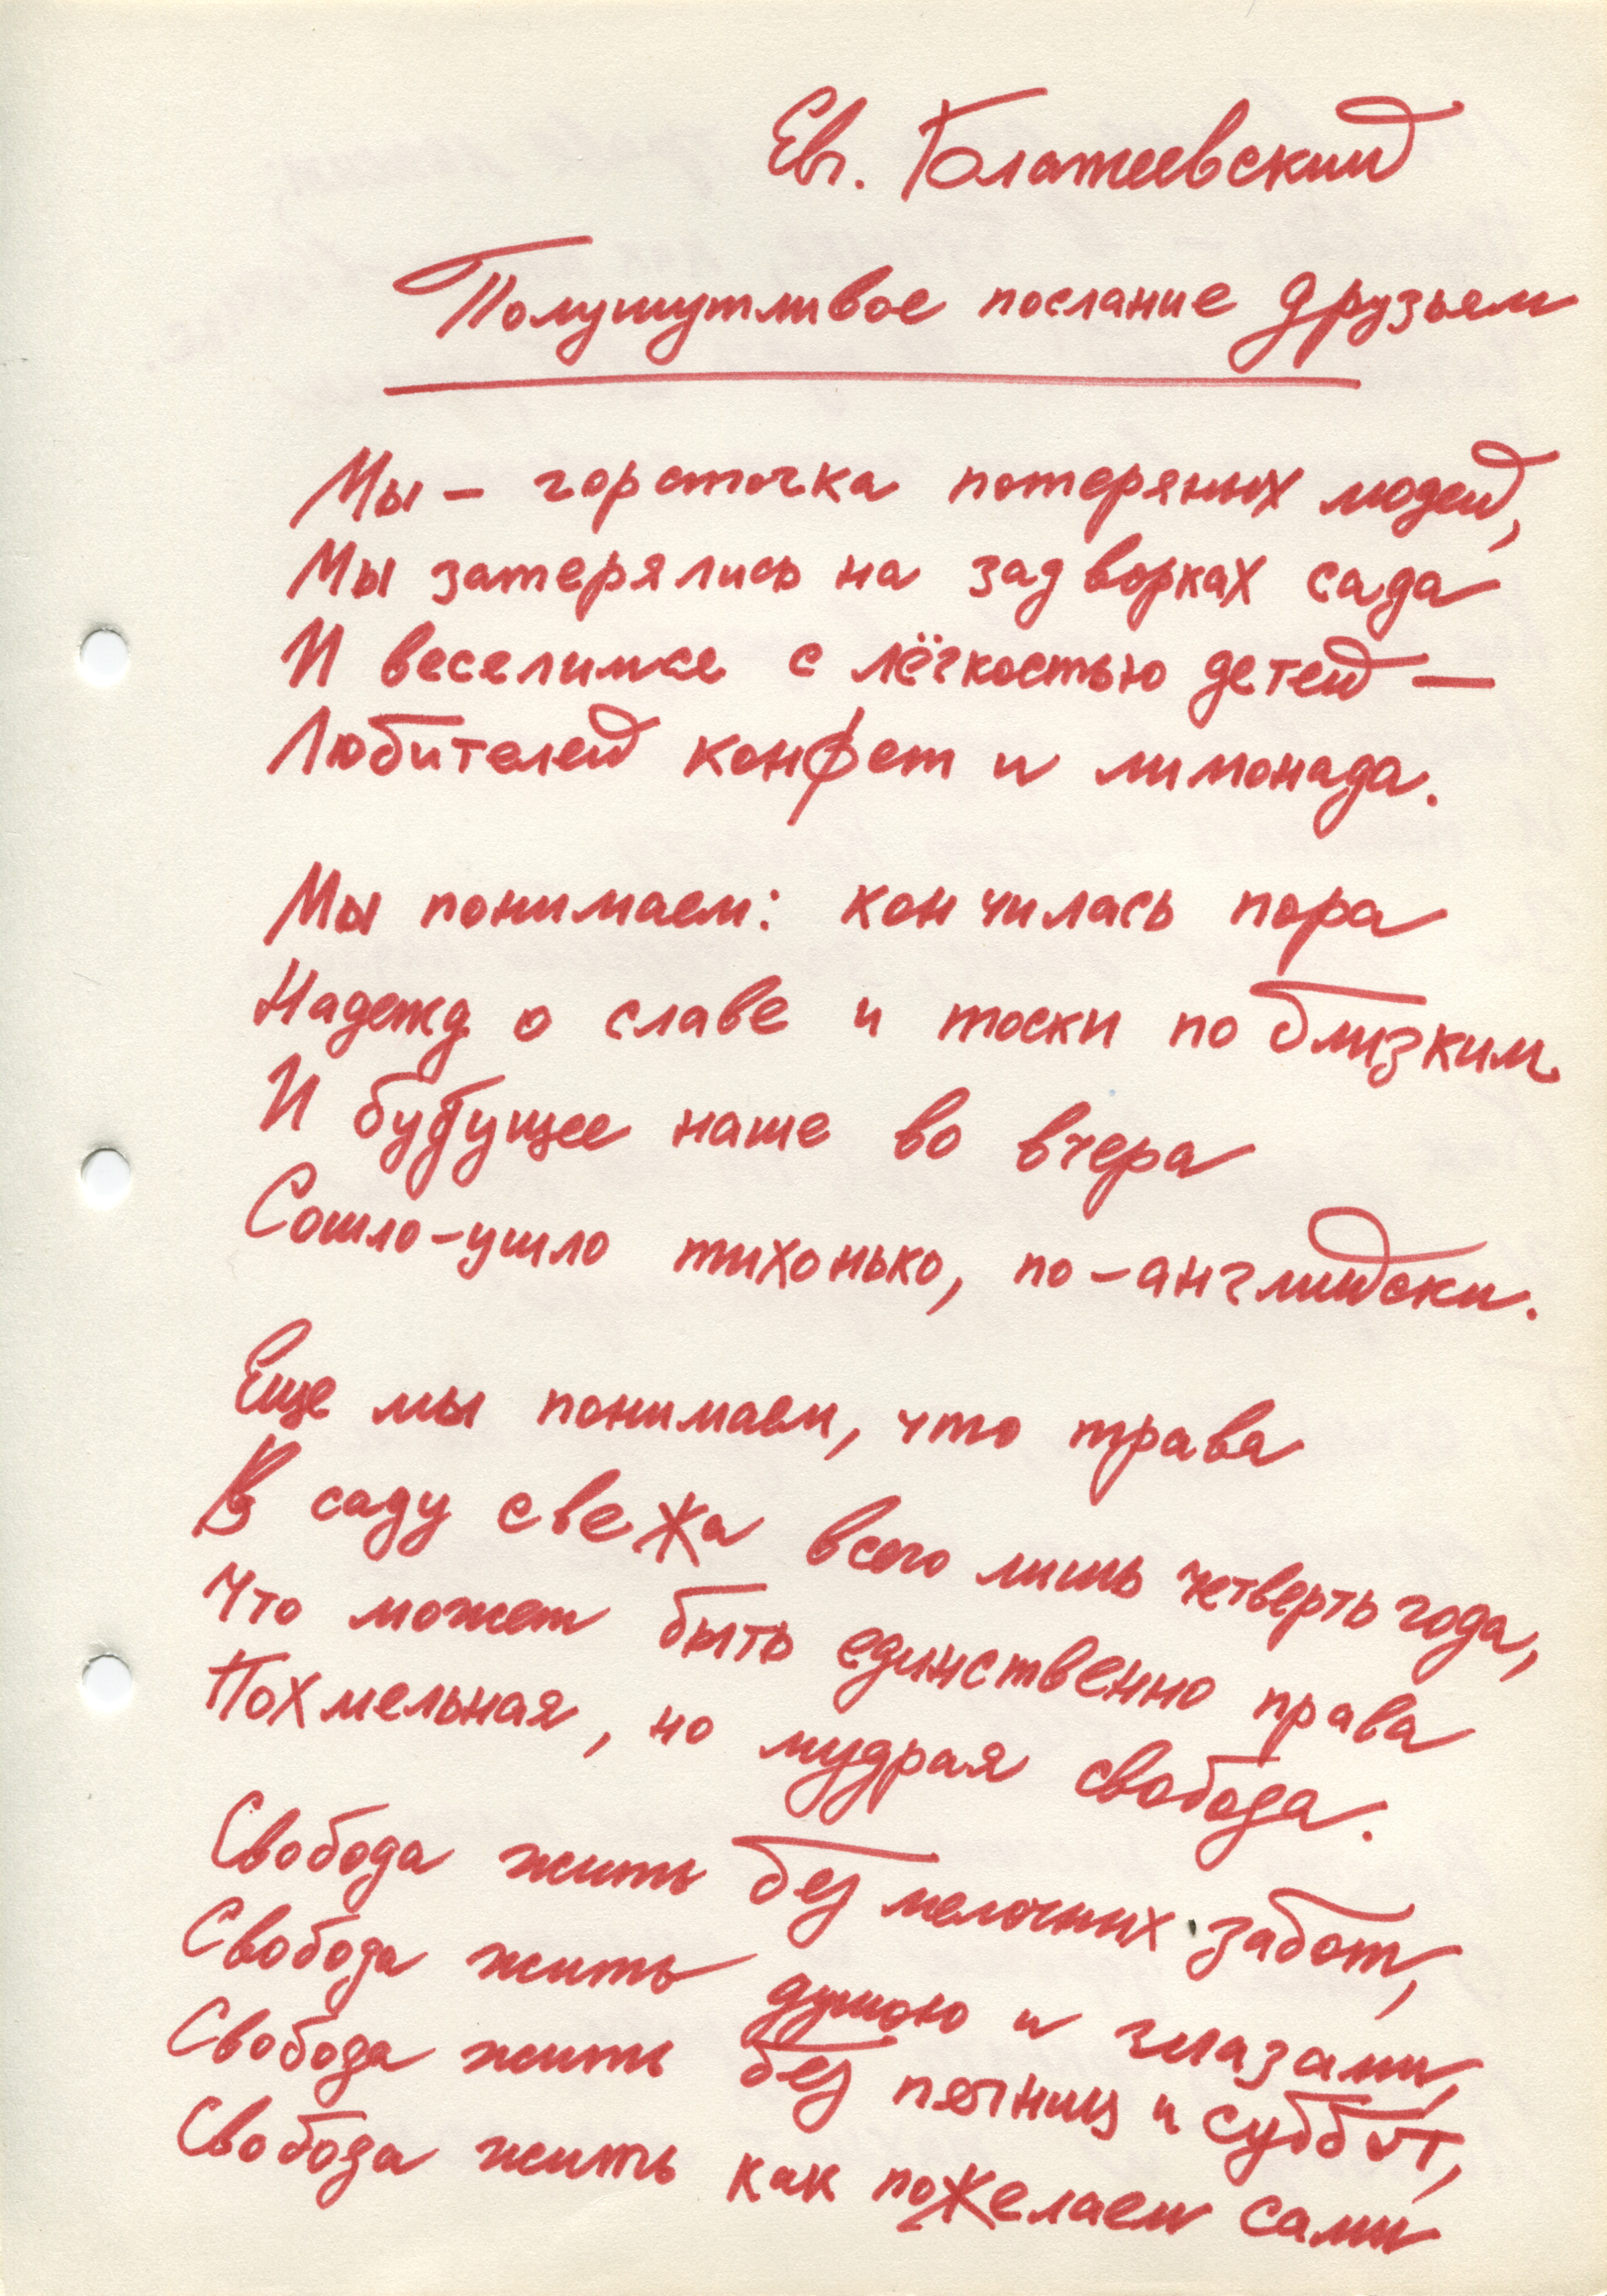 Ев. Блажеевский
Полушутливое послание друзьям
Мы – горсточка потерянных людей,
Мы затерялись на задворках сада
И веселимся с лёгкостью детей –
Любителей конфет и лимонада.
Мы понимаем: кончилась пора
Надежд о славе и тоски по близким
И будущее наше во вчера
Сошло-ушло тихонько, по-английски.
Еще мы понимаем, что трава
В саду свежа всего лишь четверть года,
Что может быть единственно права
Похмельная, но мудрая свобода.
Свобода жить без мелочных забот,
Свобода жить душою и глазами,
Свобода жить без пятниц и суббот,
Свобода жить как пожелаем сами